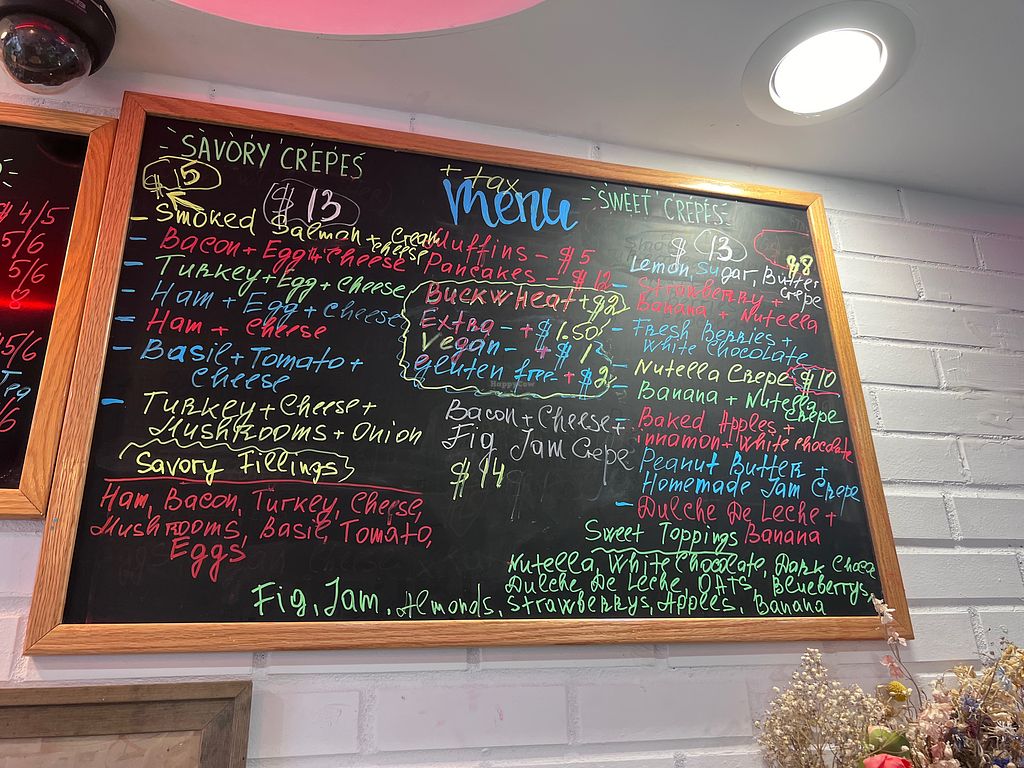 $4/5
5/6
5/6
5/6
/6
- SAVORY CREPES
$15
$13
- Smoked Salmon + Cream cheese
- Bacon + Egg + Cheese
- Turkey + Egg + Cheese
- Ham + Egg + Cheese
- Ham + Cheese
- Basil + Tomato +
Cheese
- Turkey + Cheese +
Mushrooms + Onion
Savory Fillings
Ham, Bacon, Turkey, Cheese,
Mushrooms, Basil, Tomato,
Eggs
+ tax
menu
Muffins - $5
Pancakes - $12
Buckwheat + $2
Extra - + $1.50
Vegan - + $1
Gluten free - + $2
Bacon + Cheese +
Fig Jam Crepe
$14
- SWEET CREPES -
$13
$8
- Lemon, Sugar, Butter
Crepe
- Strawberry +
Banana + Nutella
- Fresh Berries +
White Chocolate
- Nutella Crepe $10
- Banana + Nutella
Crepe
- Baked Apples +
innamon + White Chocolate
- Peanut Butter +
Homemade Jam Crepe
- Dulche De Leche +
Banana
Sweet Toppings
Nutella, White Chocolate, Dark Choco
Dulche De Leche, OATS, Blueberrys,
Fig, Jam, Almonds, Strawberrys, Apples, Banana
HappyCow